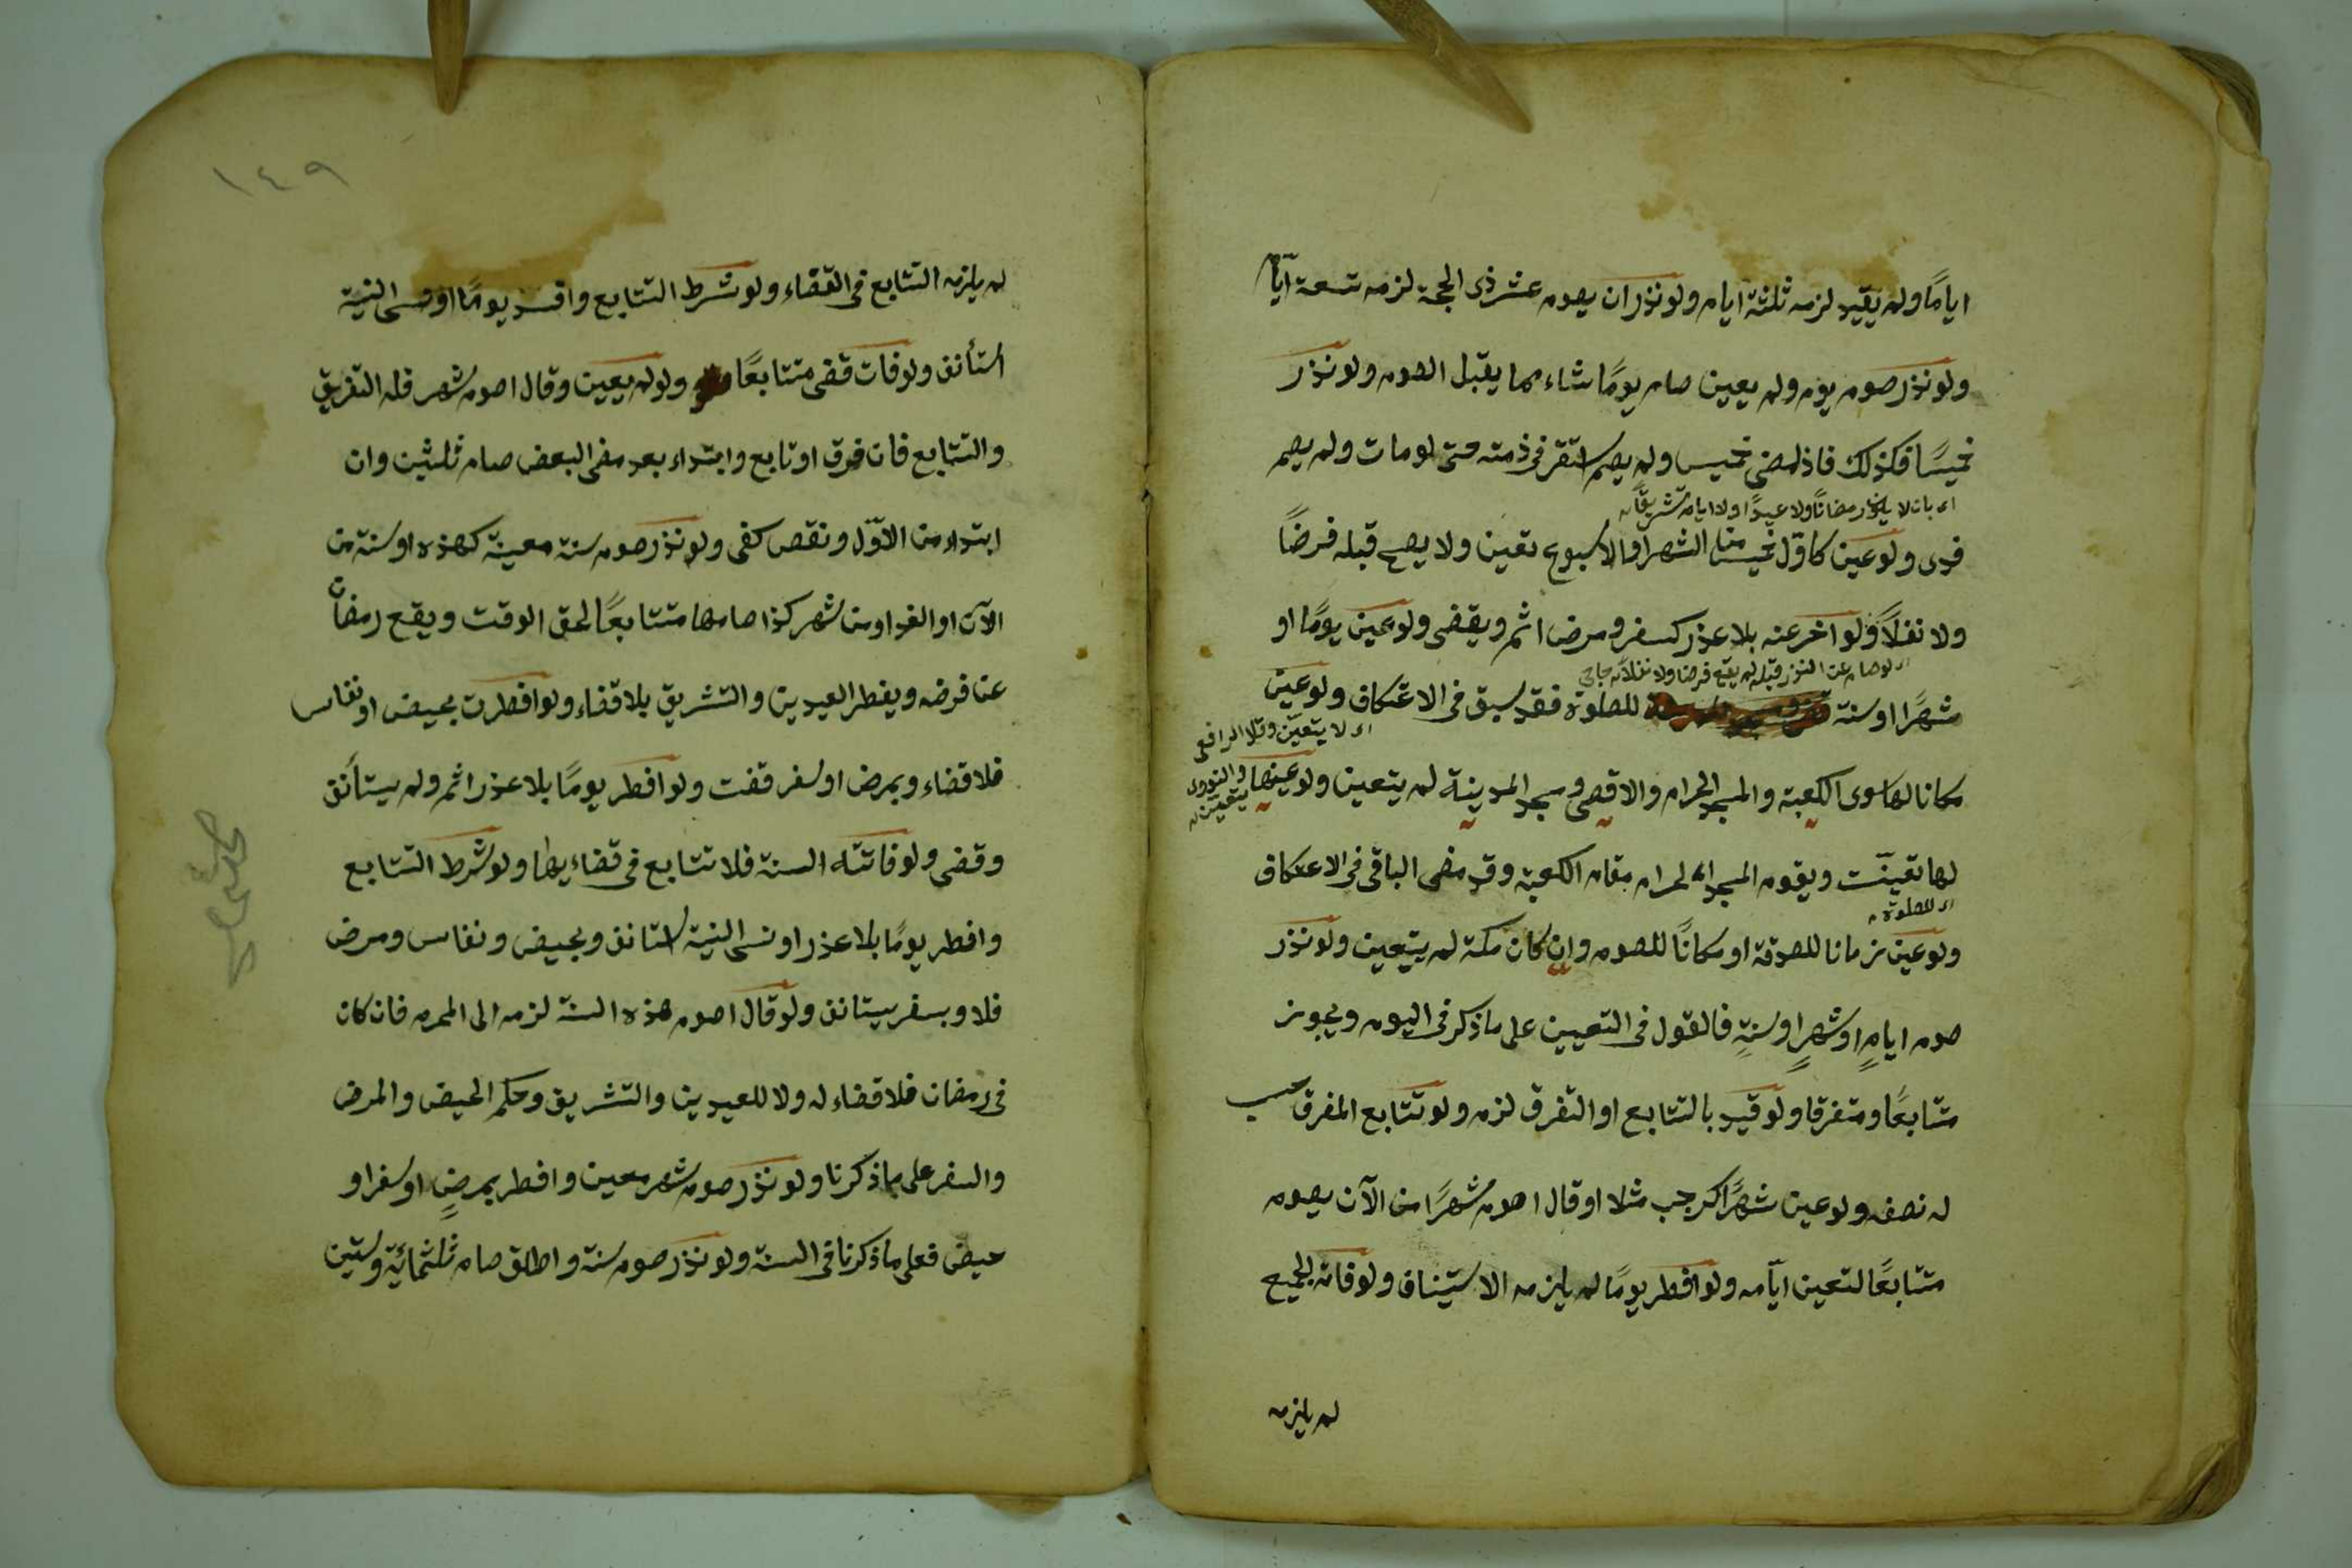 ايامًا ولم يقيد لزمه ثلثة ايام ولو نذر ان يصوم عشر ذى الحجة لزمه تسعة ايام
ولو نذر صوم يوم ولم يعين صام يومًا شاء مما يقبل الصوم ولو نذر
خميسًا فكذلك فاذا مضى خميس ولم يصم استقر فى ذمته حتى لو مات ولم يصم
فدى ولو عين كاول خميس من الشهر او الاسبوع تعين ولا يصح قبله فرضًا
ولا نفلاً ولو اخر عنه بلا عذر كسفر ومرض اثم ويقضى ولو عين يومًا او
اى لو صام عن النذر قبله لم يقع فرضا ولا نفلا
شهرًا او سنة للصلوة فقد سبق فى الاعتكاف ولو عين
اى لا يتعين وقالا الرافعى
والنووى يتعين
مكانا لها سوى الكعبة والمسجد الحرام والاقصى ومسجد المدينة لم يتعين ولو عينها
لها تعينت ويقوم المسجد الحرام مقام الكعبة وقد مضى الباقى فى الاعتكاف
اى للصلوة
ولو عين زمانا للصدقة او مكانًا للصوم وان كان مكة لم يتعين ولو نذر
صوم ايامٍ او شهرٍ او سنةٍ فالقول فى التعيين على ما ذكر فى اليوم ويجوز
متتابعًا ومتفرقا ولو قيد بالتتابع او التفرق لزم ولو تتابع المفرق حسب
له نصفه ولو عين شهرًا كرجب مثلا او قال اصوم شهرًا من الآن يصوم
متتابعًا لتعين ايامه ولو افطر يومًا لم يلزمه الاستيناف ولو فاته الجميع
لم يلزمه
١٤٩
لم يلزمه التتابع فى القضاء ولو شرط التتابع وافسد يومًا او نسى النية
استأنف ولو فات قضى متتابعًا ولو لم يعين وقال اصوم شهر فله التفريق
والتتابع فان فرق او تابع وابتداء بعد مضى البعض صام ثلثين وان
ابتداء من الاول ونقص كفى ولو نذر صوم سنة معينة كهذه او سنة من
الآن او الغد او من شهر كذا صامها متتابعًا لحق الوقت ويقع رمضان
عن فرضه ويفطر العيدين والتشريق بلا قضاء ولو افطرت بحيض او نفاس
فلا قضاء وبمرض او سفر قضت ولو افطر يومًا بلا عذر اثم ولم يستأنف
وقضى ولو فاتته السنة فلا تتابع فى قضاءيها ولو شرط التتابع
وافطر يومًا بلا عذر او نسى النية استانف وبحيض ونفاس ومرض
فلا وبسفر يستانف ولو قال اصوم هذه السنة لزمه الى المحرم فان كان
فى رمضان فلا قضاء له ولا للعيدين والتشريق وحكم الحيض والمرض
والسفر على ما ذكرنا ولو نذر صوم شهر معين وافطر بمرضٍ او سفر او
حيض فعلى ما ذكرنا فى السنة ولو نذر صوم سنة واطلق صام ثلثمائة وستين